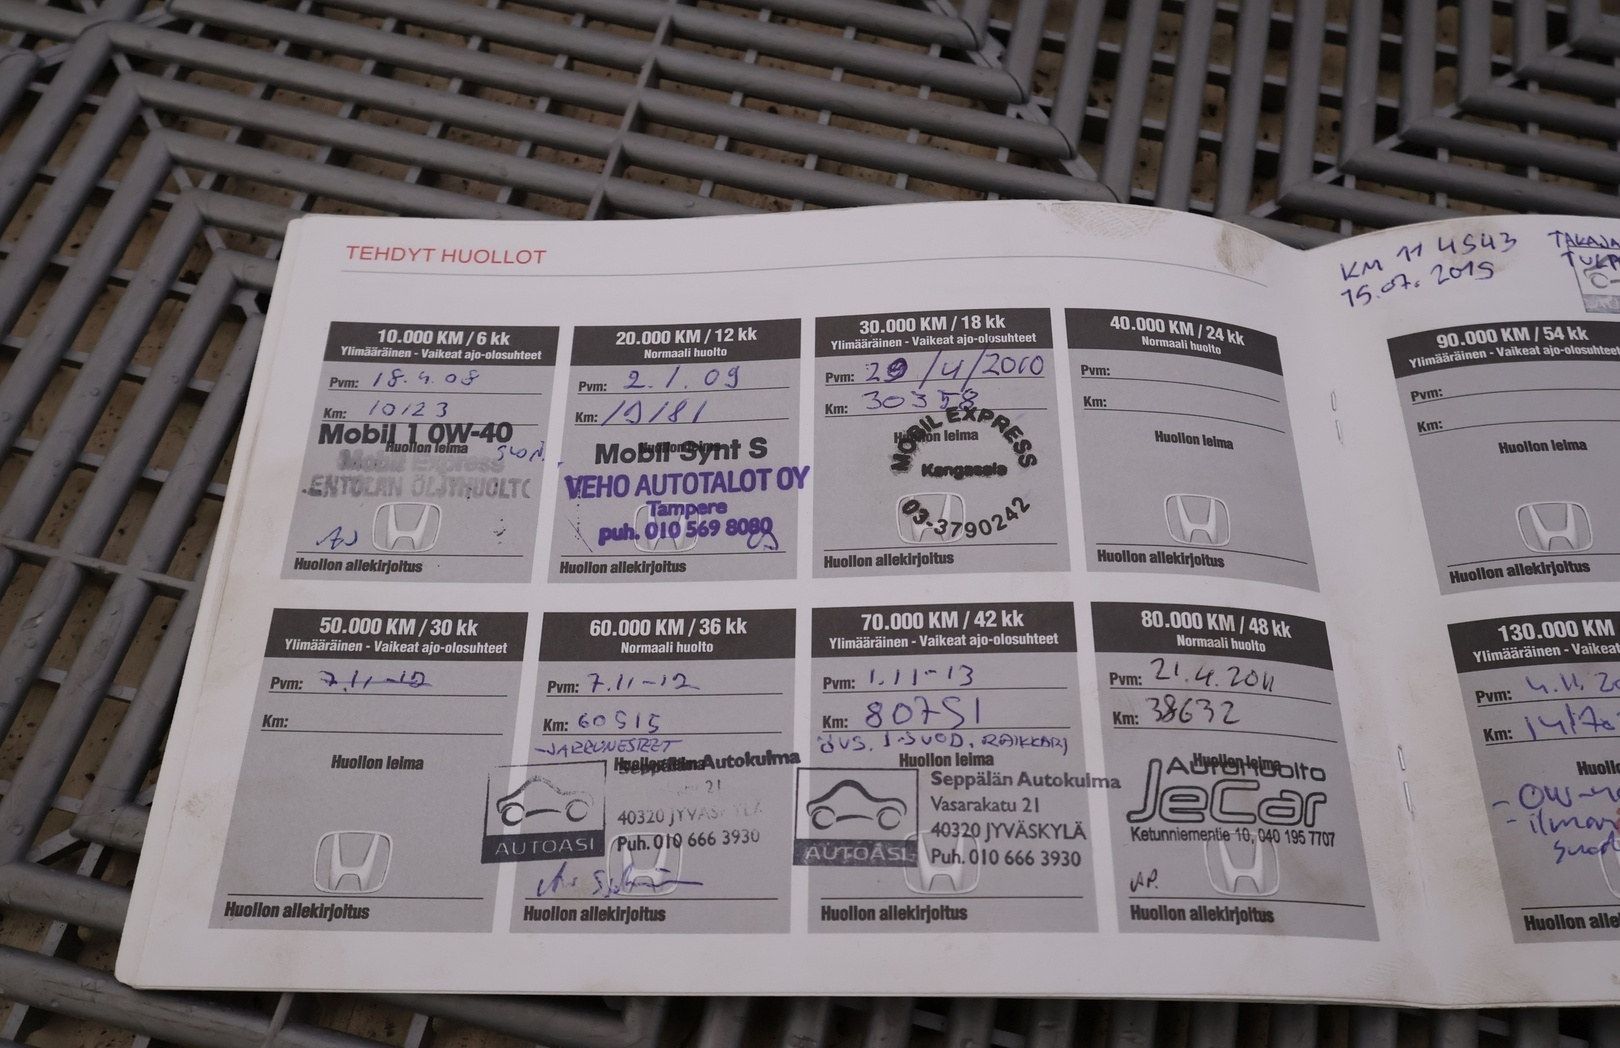 TEHDYT HUOLLOT
10.000 KM / 6 kk
Ylimääräinen - Vaikeat ajo-olosuhteet
Pvm: 18.4.08
Km: 10123
Mobil 1 0W-40
Huollon leima
Mobil Express
LENTOLAN ÖLJYHUOLTO
Huollon allekirjoitus
20.000 KM / 12 kk
Normaali huolto
Pvm: 2.1.09
Km: 19181
Huollon leima
Mobil Synt S
VEHO AUTOTALOT OY
Tampere
puh. 010 569 8080
Huollon allekirjoitus
30.000 KM / 18 kk
Ylimääräinen - Vaikeat ajo-olosuhteet
Pvm: 29/4/2010
Km: 30358
Huollon leima
MOBIL EXPRESS
Kangasala
03-3790242
Huollon allekirjoitus
40.000 KM / 24 kk
Normaali huolto
Pvm:
Km:
Huollon leima
Huollon allekirjoitus
50.000 KM / 30 kk
Ylimääräinen - Vaikeat ajo-olosuhteet
Pvm: 7.11-12
Km:
Huollon leima
Huollon allekirjoitus
60.000 KM / 36 kk
Normaali huolto
Pvm: 7.11-12
Km: 60515
-JARRUNESTEET
Huollon leima
Seppälän Autokulma
21
40320 JYVÄSKYLÄ
Puh. 010 666 3930
AUTOASI
Huollon allekirjoitus
70.000 KM / 42 kk
Ylimääräinen - Vaikeat ajo-olosuhteet
Pvm: 1.11-13
Km: 80751
Huollon leima
Seppälän Autokulma
Vasarakatu 21
40320 JYVÄSKYLÄ
Puh. 010 666 3930
AUTOASI
Huollon allekirjoitus
80.000 KM / 48 kk
Normaali huolto
Pvm: 21.4.2011
Km: 38632
Huollon leima
AutoHuolto
JeCar
Ketunniementie 10, 040 195 7707
AP.
Huollon allekirjoitus
KM 114543
15.07.2015
TAKAJA
90.000 KM / 54 kk
Ylimääräinen - Vaikeat ajo-olosuhte
Pvm:
Km:
Huollon leima
Huollon allekirjoitus
130.000 KM
Ylimääräinen - Vaikeat
Pvm: 4.11.20
Km:
Huollo
- 0W-40
Huollon alle